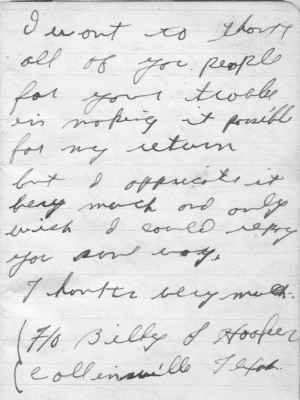 I wont to thank
all of you people
for your trouble
in making it possible
for my return
but I appricate it
bery much and only
wish I could repay
you som way.
Thanks bery much.
F/O Billy J Hooper
Collinsville Texas.